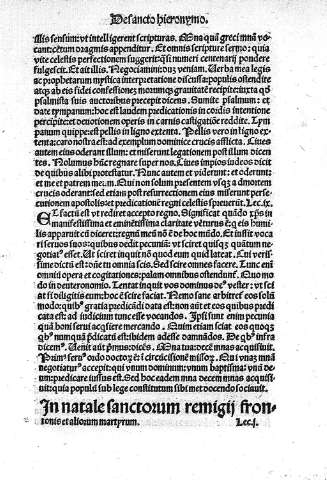 De sancto hieronymo.
illis sensum: vt intelligerent scripturas. Mna quã greci mnã vo-
cant: cẽtum dragmis appenditur. Et omnis scripture sermo: quia
vite celestis perfectionem suggerit: quasi numeri centenarij pondere
fulgescit. Et ait illis. Negociamini: dũ venio. Verba mea legis
ac prophetarum mystica interpretatione discussa: populis ostendite
atqꝫ ab eis fidei confessionẽ: morumqꝫ grauitatẽ recipite: iuxta qd
psalmista suis auctoribus precepit dicens. Sumite psalmum: et
date tympanum: hoc est laudem predicationis in cordis intentione
percipite: et deuotionem operis in carnis castigatiõe reddite. Tym
panum quippe est pellis in ligno extenta. Pellis vero in ligno exten-
ta: caro nostra est: ad exemplum dominice crucis afflicta. Ciues
autem eius oderant illum: et miserunt legationem post illum dicen
tes. Nolumus hũc regnare super nos. Ciues impios iudeos dicit
de quibus alibi protestatur. Nunc autem et viderunt: et oderunt:
et me et patrem meum. Qui non solum presentem vsqꝫ a dmortem
crucis oderant: sed etiam post resurrectionem eius miserunt perse-
cutionem apostolis: et predicationẽ regni celestis spreuerunt. Lec.ix.
ET factũ est vt rediret accepto regno. Significat quãdo xp̃s in
manifestissima et eminẽtissima claritate vẽturus ẽ: qui eis humi-
lis apparuit cũ diceret: regnũ meũ nõ ẽ de hoc mũdo. Et iussit voca
ri seruos suos: quibus dedit pecuniã: vt sciret quisqꝫ quãtum ne
gotiatꝰ esset. Ut sciret inquit nõ quod eum quid lateat. Cui veris-
sime dictũ est: dñe tu omnia scis. Sed scire omnes facere. Lune enĩ
omnĩ opera et cogitationes: palam omnibus ostendunt̃. Quo mo
do in deuteronomio. Tentat inquit vos dominus deꝰ vester: vt sci
at si diligitis eum: hoc est scire faciat. Nemo sane arbitret̃ eos solũ
modo: quibꝰ gratia predicãdi data est: non aũt et eos quibus predi
cata est: ad iudicium tunc esse vocandos. Ipsi sunt enim pecunia
quã boni serui acqsiere mercando. Quim etiam sciat eos quoqꝫ
qbꝰ nunqua p̃dicati est: ibidem adesse damnãdos. De qbꝰ infra
dicem̃. Uenit aũt p̃mus: dicẽs. Dña tua: decẽ mnas acquisiuit.
Primꝰ seruꝰ ordo doctoꝝ ẽ: i circũcisionẽ missoꝝ. Qui vnaꝫ mnã
negotiaturꝰ accepit: qui vnum dominum: vnum baptisma: vnũ de
um: predicare iussus est. Sed hoc eadem mna decem mnas acquisi-
uit: quia populũ sub lege constitutum sibi met docendo sociauit.
In natale sanctorum remigij fron-
tonis et aliorum martyrum. Lec.j.